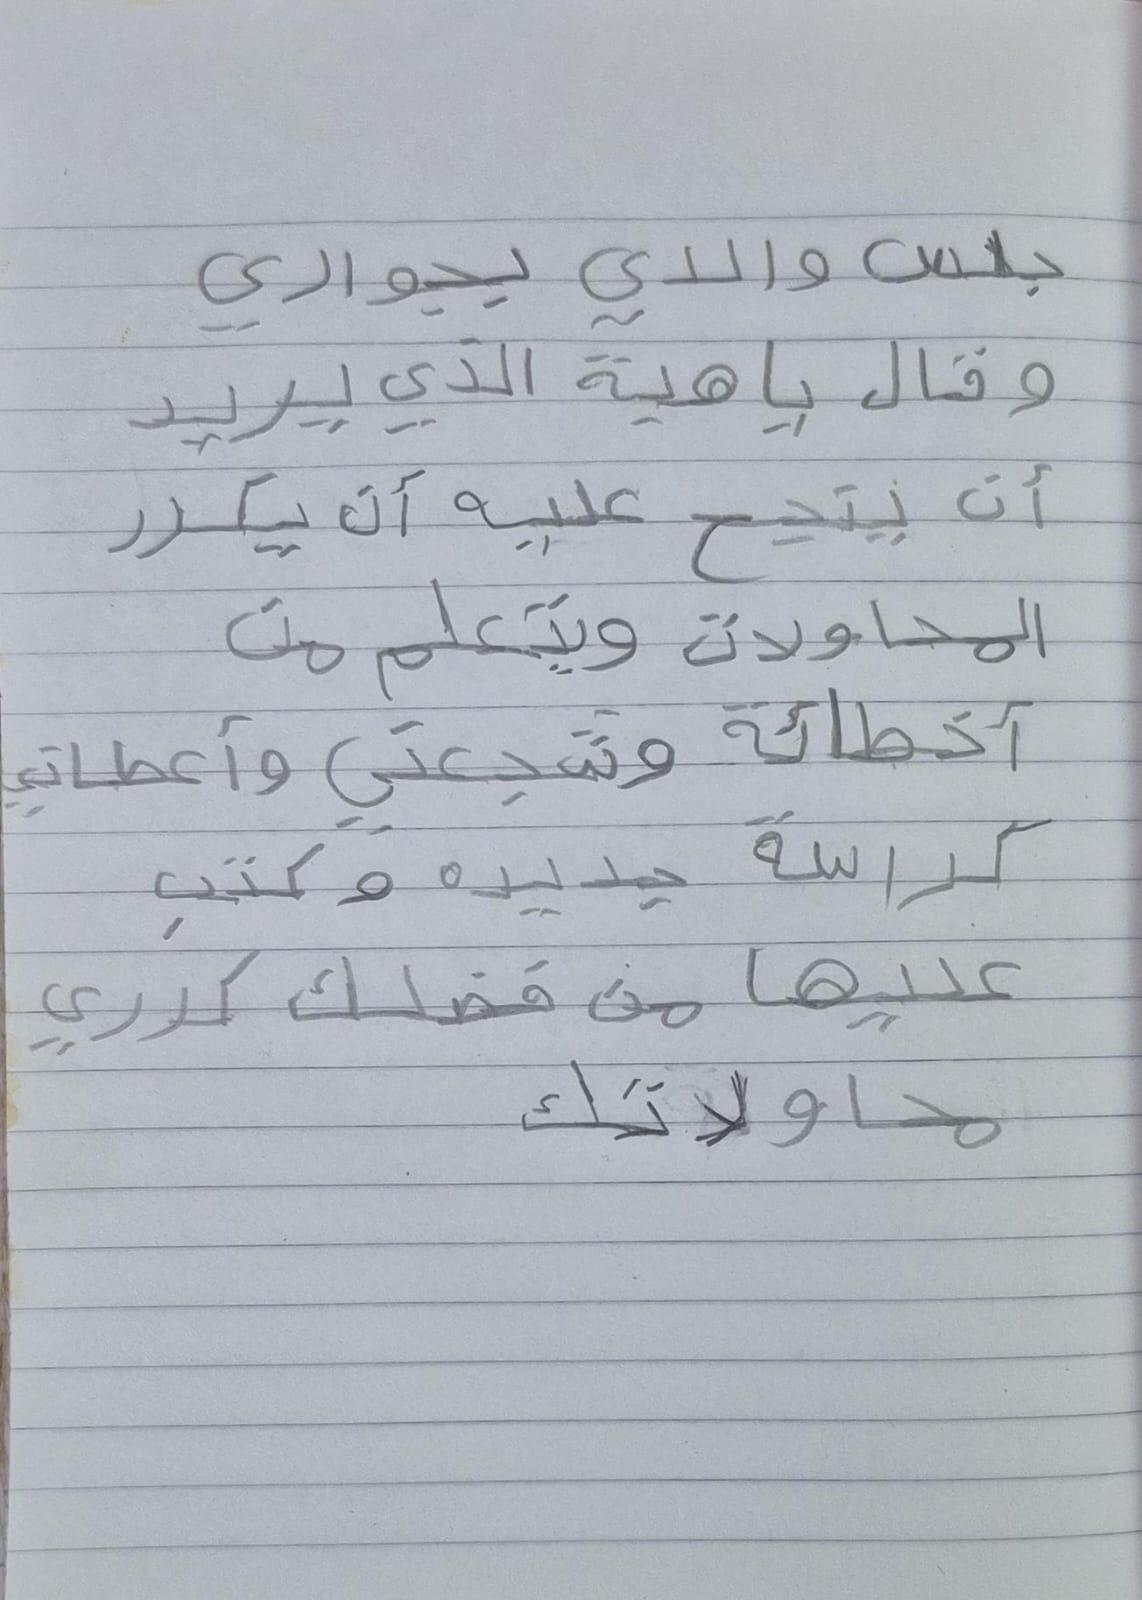 جلس والدي بجواري
وقال يا هبة الذي يريد
أن ينجح عليه أن يكرر
المحاولات ويتعلم من
أخطائة وشجعني وأعطاني
كراسة جديده وكتب
عليها من فضلك كرري
محاولاتك